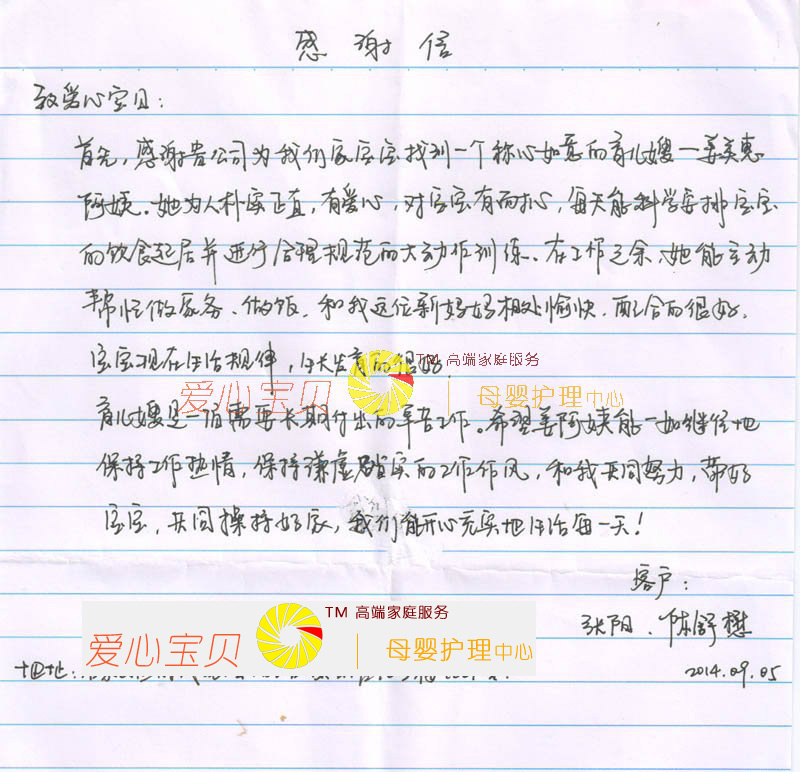 感谢信
致爱心宝贝:
首先,感谢贵公司为我们家宝宝找到一个称心如意的育儿嫂—姜美惠
阿姨。她为人朴实正直,有爱心,对宝宝有耐心,每天能科学安排宝宝
的饮食起居并进行合理规范的大动作训练。在工作之余、她能主动
帮忙做家务、做饭,和我这位新妈妈相处愉快,配合的很好。
宝宝现在生活规律,生长发育的很好。
TM 高端家庭服务
爱心宝贝 母婴护理中心
育儿嫂是一份需要长期付出的辛苦工作。希望姜阿姨能一如继往地
保持工作热情,保持谦虚踏实的工作作风,和我共同努力,带好
宝宝,共同操持好家,我们能开心充实地生活每一天!
客户:
张阳、陈舒懋
TM 高端家庭服务
爱心宝贝 母婴护理中心
地址:
2014.09.05